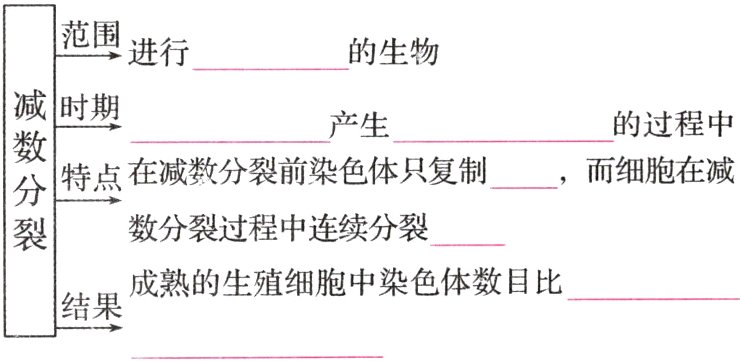 减数分裂
范围
进行________的生物
时期
________产生________的过程中
特点
在减数分裂前染色体只复制____，而细胞在减
数分裂过程中连续分裂____
结果
成熟的生殖细胞中染色体数目比________
________